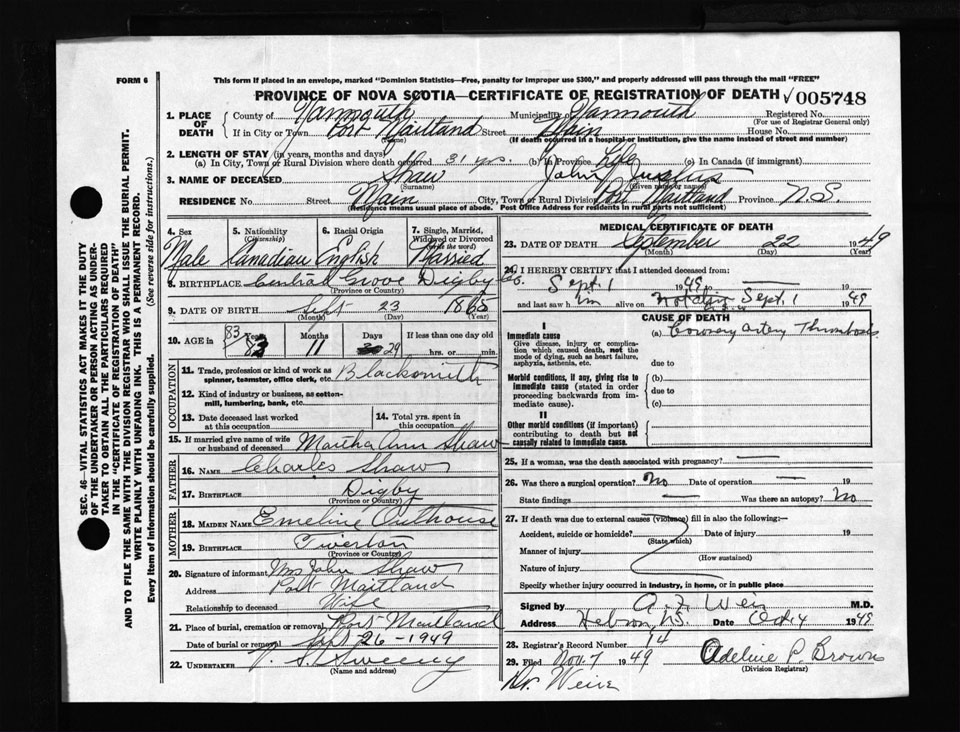 FORM 6
This form if placed in an envelope, marked "Dominion Statistics—Free, penalty for improper use $300," and properly addressed will pass through the mail "FREE"
PROVINCE OF NOVA SCOTIA—CERTIFICATE OF REGISTRATION OF DEATH √ 005748
1. PLACE OF DEATH { County of Yarmouth Municipality of Yarmouth Registered No.
(For use of Registrar General only)
If in City or Town Port Maitland Street Main House No.
(Name) (If death occurred in a hospital or institution, give the name instead of street and number)
2. LENGTH OF STAY (in years, months and days)
(a) In City, Town or Rural Division where death occurred 31 yrs. (b) In Province Life (c) In Canada (if immigrant)
3. NAME OF DECEASED Shaw John
(Surname) (Given name or names)
RESIDENCE No. Street Main City, Town or Rural Division Port Maitland Province N.S.
(Residence means usual place of abode. Post Office Address for residents in rural parts not sufficient)
4. Sex 5. Nationality 6. Racial Origin 7. Single, Married,
(Citizenship) Widowed or Divorced
(Write the word)
Male Canadian English Married
8. BIRTHPLACE Central Grove Digby Co.
(Province or Country)
9. DATE OF BIRTH Sept 23 1865
(Month) (Day) (Year)
10. AGE in Years Months Days If less than one day old
83 11 29 hrs. or min.
OCCUPATION
11. Trade, profession or kind of work as
spinner, teamster, office clerk, etc. Blacksmith
12. Kind of industry or business, as cotton-
mill, lumbering, bank, etc.
13. Date deceased last worked
at this occupation
14. Total yrs. spent in
this occupation
15. If married give name of wife
or husband of deceased Martha Ann Shaw
FATHER
16. NAME Charles Shaw
17. BIRTHPLACE Digby
(Province or Country)
MOTHER
18. MAIDEN NAME Emeline Outhouse
19. BIRTHPLACE Tiverton
(Province or Country)
20. Signature of informant Mrs John Shaw
Address Port Maitland
Relationship to deceased Wife
21. Place of burial, cremation or removal Port Maitland
Date of burial or removal Sept 26-1949
22. UNDERTAKER V. S. Sweeny
(Name and address)
MEDICAL CERTIFICATE OF DEATH
23. DATE OF DEATH September 22 1949
(Month) (Day) (Year)
24. I HEREBY CERTIFY that I attended deceased from:
Sept. 1 1949
and last saw him alive on Sept. 1 1949
CAUSE OF DEATH
I
Immediate cause (a) Coronary artery Thrombosis
Give disease, injury or complica-
tion which caused death, not the
mode of dying, such as heart failure,
asphyxia, asthenia, etc. due to
Morbid conditions, if any, giving rise to
immediate cause (stated in order
proceeding backwards from im-
mediate cause).
(b)
due to
(c)
II
Other morbid conditions (if important)
contributing to death but not
causally related to immediate cause.
25. If a woman, was the death associated with pregnancy? —
26. Was there a surgical operation? No Date of operation — 19
State findings — Was there an autopsy? No
27. If death was due to external causes (violence) fill in also the following:—
Accident, suicide or homicide? Date of injury 19
(State which)
Manner of injury
(How sustained)
Nature of injury
Specify whether injury occurred in industry, in home, or in public place
Signed by A. F. Weir M.D.
Address Hebron, N.S. Date Oct 4 1949
28. Registrar's Record Number 14
29. Filed Nov. 7 1949 Adeline P. Brown
(Division Registrar)
Dr. Weir
SEC. 46—VITAL STATISTICS ACT MAKES IT THE DUTY
OF THE UNDERTAKER OR PERSON ACTING AS UNDER-
TAKER TO OBTAIN ALL THE PARTICULARS REQUIRED
IN THE "CERTIFICATE OF REGISTRATION OF DEATH"
AND TO FILE THE SAME WITH THE DIVISION REGISTRAR WHO SHALL ISSUE THE BURIAL PERMIT.
WRITE PLAINLY WITH UNFADING INK. THIS IS A PERMANENT RECORD.
Every item of information should be carefully supplied. (See reverse side for instructions.)